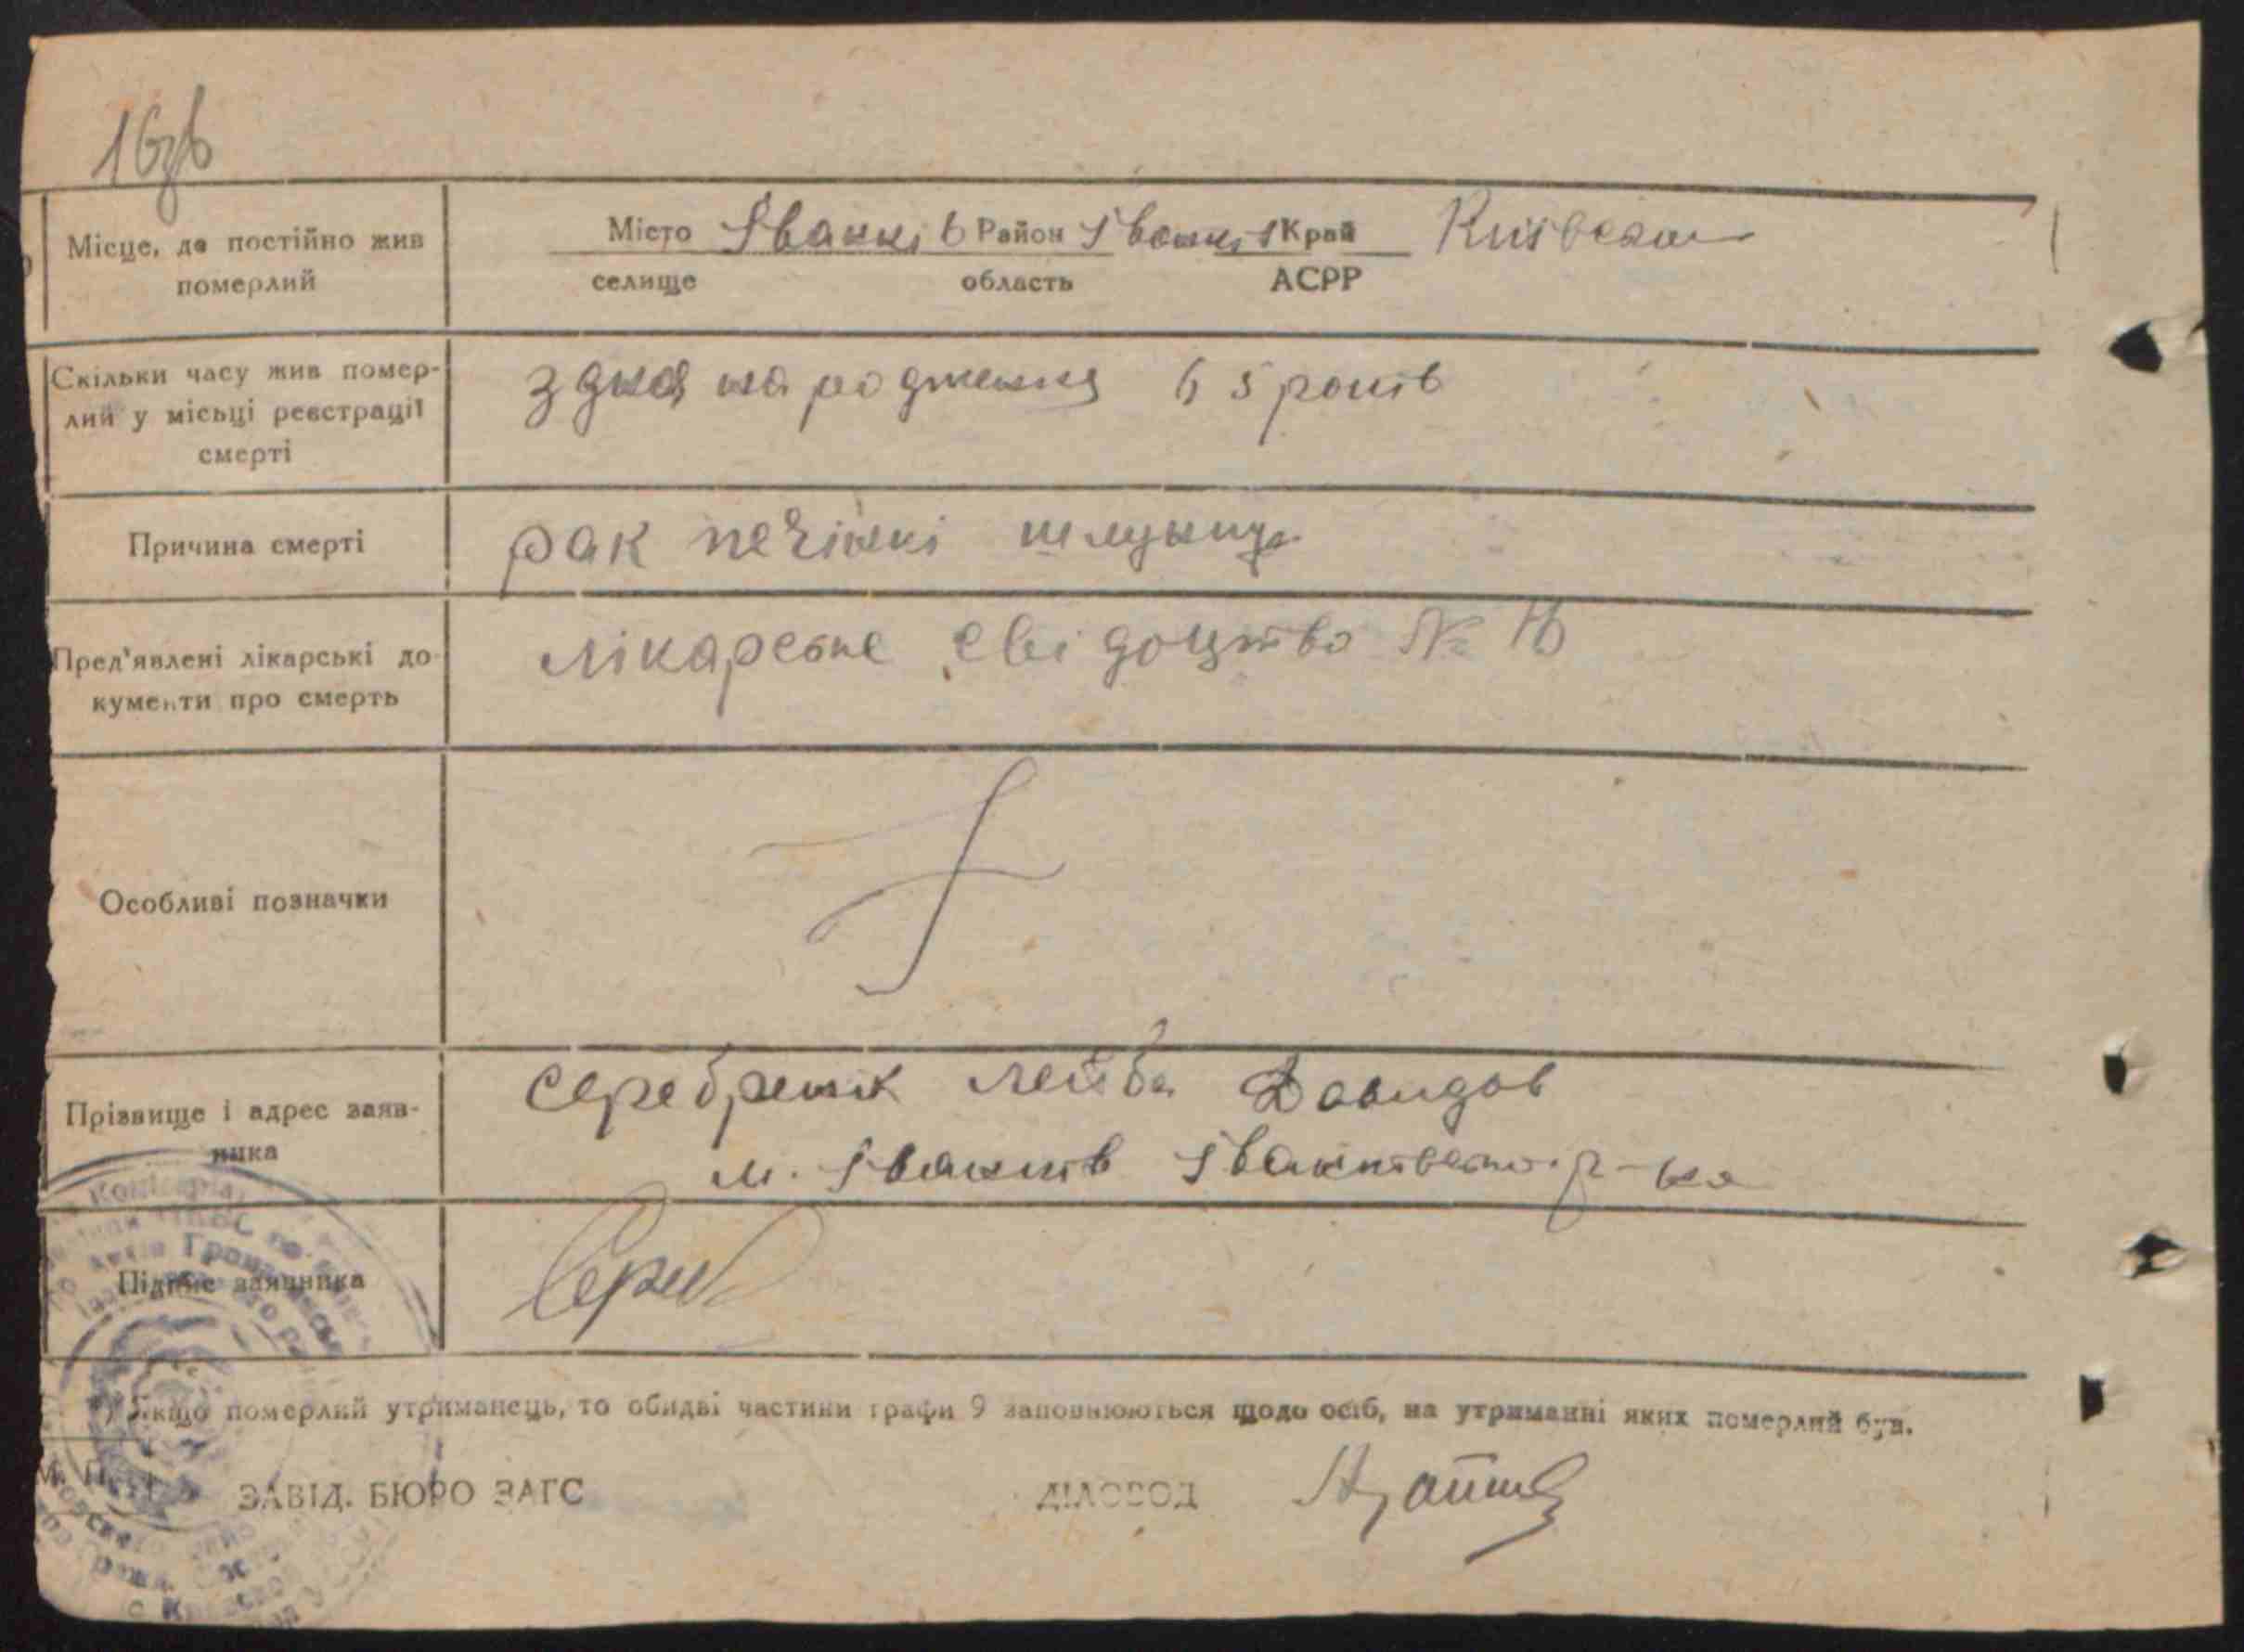 16зв
Місце, де постійно жив
померлий
Місто Іванків Район Іванків Край Київська
селище область АСРР
Скільки часу жив помер-
лий у місьці реєстрації
смерті
з дня народження 65 років
Причина смерті
рак печінкі шлунка
Пред'явлені лікарські до-
кументи про смерть
лікарське свідоцтво №
Особливі позначки
Прізвище і адрес заяв-
ника
Серебреник Лейба Давидов
м. Іванків Іванківсько. р-на
Підпис заявника
*) Якщо померлий утриманець, то обидві частини графи 9 заповнюються щодо осіб, на утриманні яких померлий був.
М. П.
ЗАВІД. БЮРО ЗАГС ДІЛОВОД